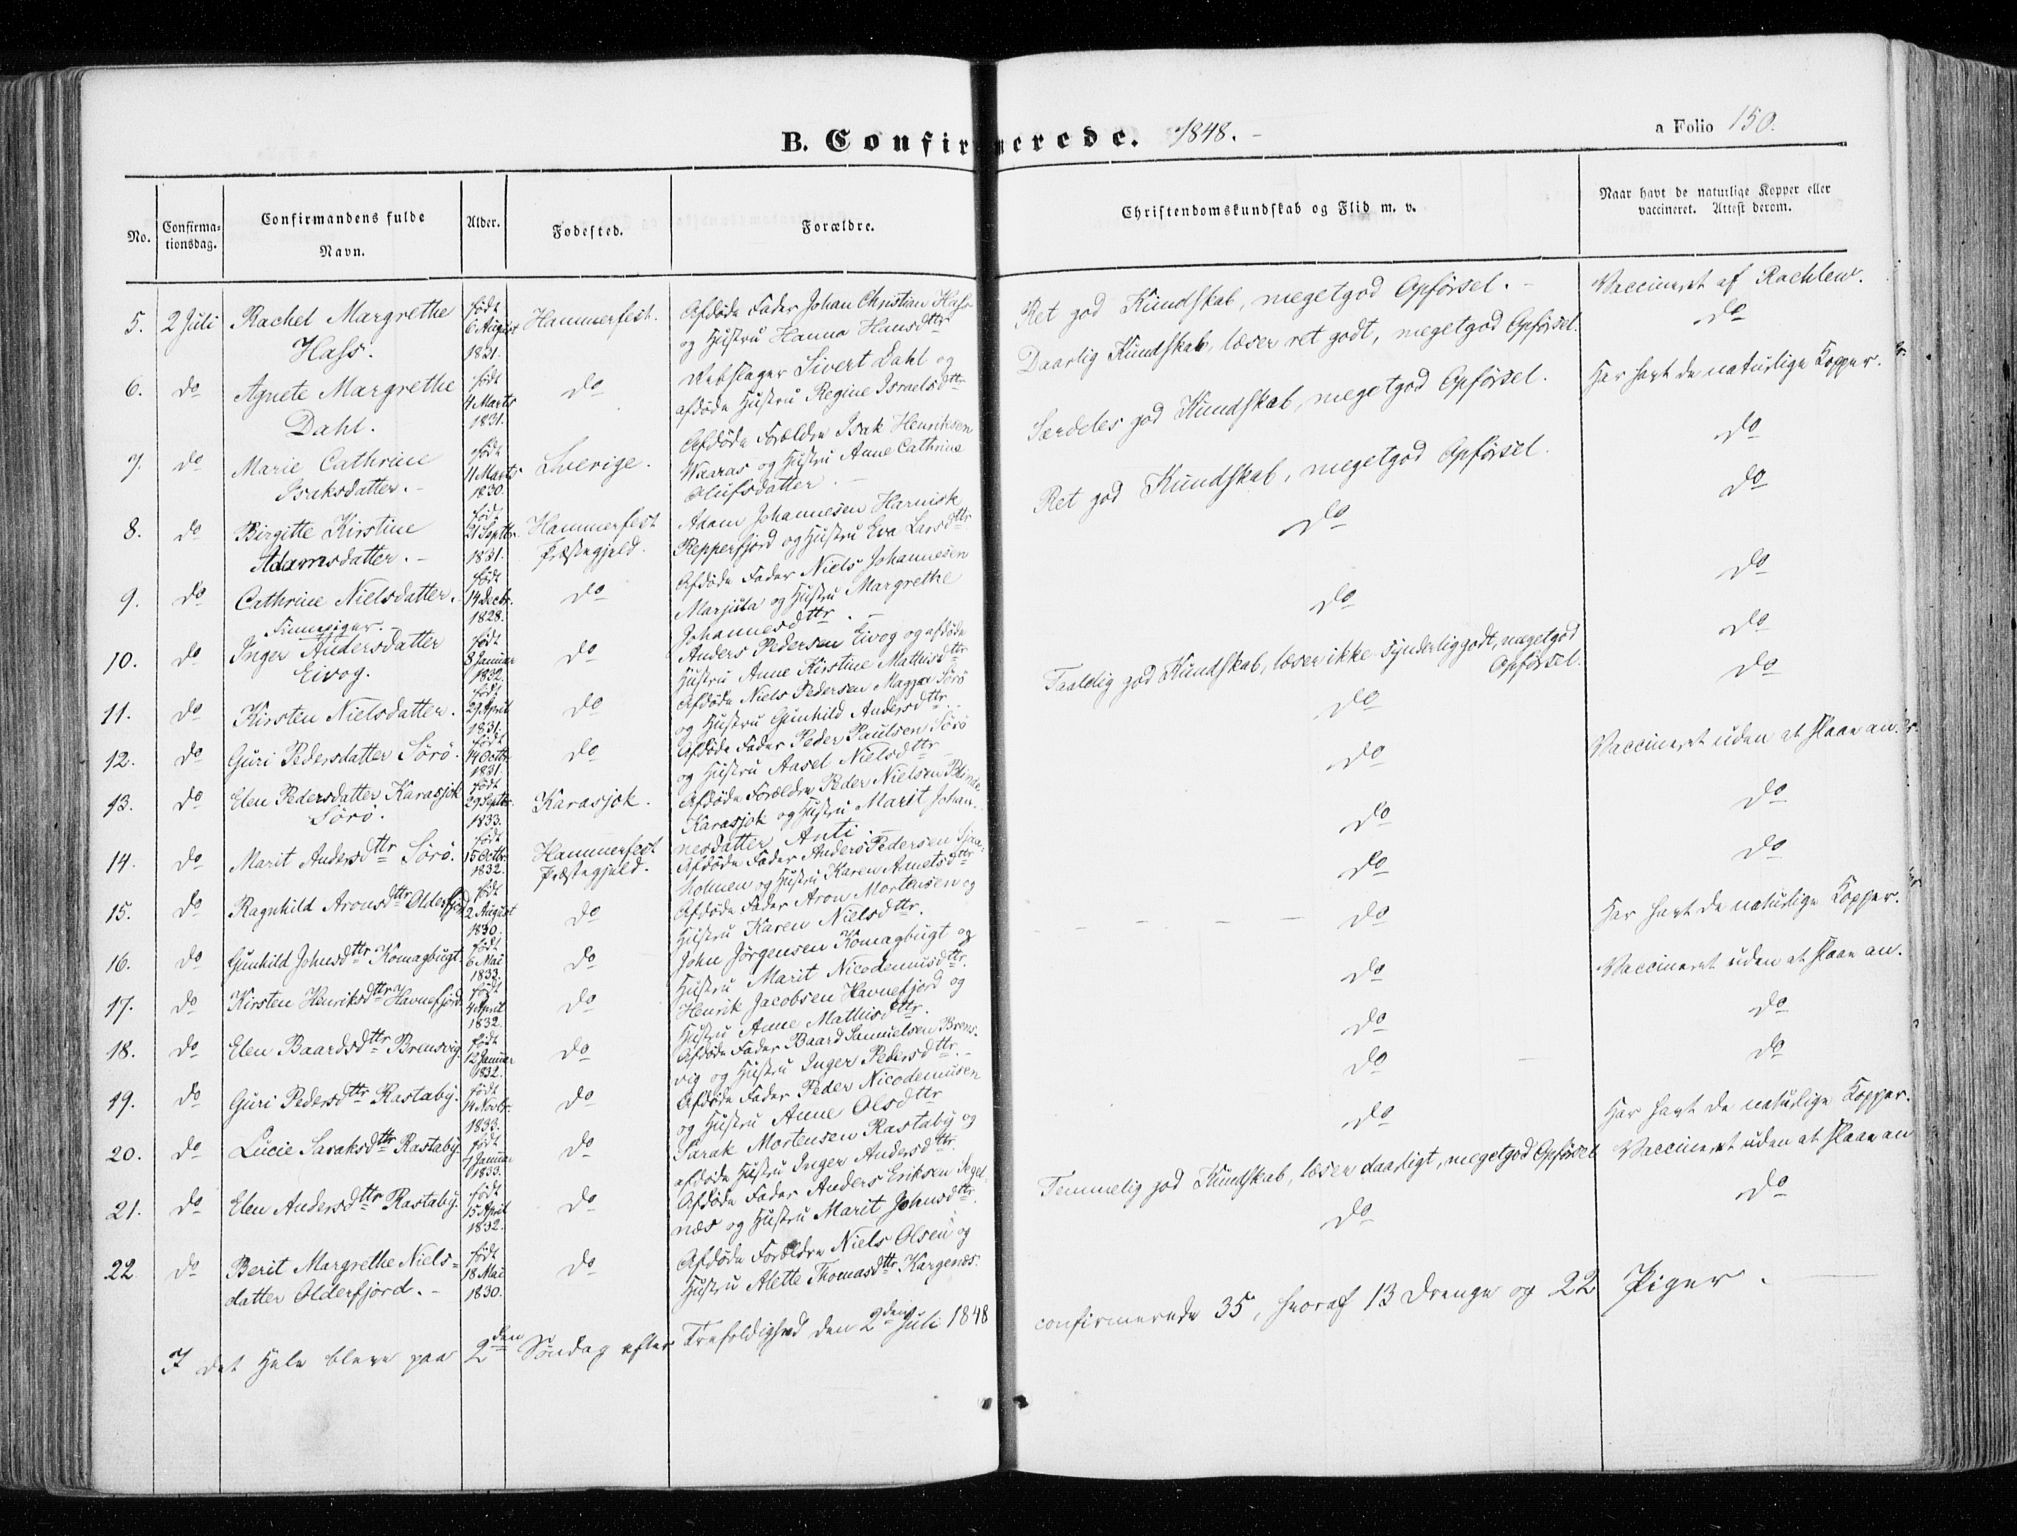 B. Confirmerede. 1848. -
a Folio 150.
No.
Confirma-
tionsdag.
Confirmandens fulde
Navn.
Alder.
Fødested.
Forældre.
Christendomskundskab og Flid m. v.
Naar havt de naturlige Kopper eller
vaccineret. Attest derom.
5. 2 Juli Rachel Margrethe
Hass.
født
6 August
1821.
Hammerfest.
Afdøde Fader Johan Christian Hass
og Hustru Hanna Hansdttr
Ret god Kundskab, megetgod Opførsel. -
Vaccineret af Rachlew.
6. do Agnete Margrethe
Dahl.
født
4 Marts
1831.
do
Rebslager Sivert Dahl og
afdøde Hustru Regine Israelsdttr
Daarlig Kundskab, læser ret godt, megetgod Opførsel.
do
7. do Marie Cathrine
Isaksdatter. -
født
11 Marts
1830.
Sverige.
Afdøde Forældre Isak Henriksen
Waaras og Hustru Anne Cathrine
Olufsdatter. -
Særdeles god Kundskab, megetgod Opførsel.
Har havt de naturlige Kopper.
8. do Birgitte Kirstine
Adamsdatter. -
født
21 Septbr.
1831.
Hammerfest
Præstegjeld.
Adam Johannesen Harnisk
Repperfjord og Hustru Eva Larsdttr
Ret god Kundskab, megetgod Opførsel.
do
9. do Cathrine Nielsdatter.
Finnepiger. -
født
14 Decbr.
1828.
do
Afdøde Fader Niels Johannesen
Marjuta og Hustru Margrethe
Johannesdttr. -
do
do
10. do Inger Andersdatter
Eivog.
født
8 Januar
1832.
do
Anders Pedersen Eivog og afdøde
Hustru Anne Kirstine Mathisdttr
do
do
11. do Kirsten Nielsdatter.
født
29 April
1831.
do
Afdøde Niels Pedersen Magga Sørø
og Hustru Gunhild Andersdttr.
Taalelig god Kundskab, læser ikke synderlig godt, megetgod
Opførsel.
do
12. do Guri Pedersdatter Sørø.
født
14 Octbr.
1831.
do
Afdøde Fader Peder Paulsen Sørø
og Hustru Aasel Nielsdttr
do
do
13. do Elen Pedersdatter Karasjok
Sørø.
født
29 Septbr.
1833.
Karasjok.
Afdøde Forældre Peder Nielsen Blinde
Karasjok og Hustru Marit Johan-
nesdatter Anti.
do
Vaccineret uden at slaae an.
14. do Marit Andersdttr Sørø.
født
15 Octbr.
1832.
Hammerfest
Præstegjeld.
Afdøde Fader Anders Pedersen
holmen og Hustru Karen Amctsdttr
do
do
15. do Ragnhild Aronsdttr Olderfjord
født
2 August
1830.
do
Afdøde Fader Aron Mortensen og
Hustru Karen Nielsdttr.
do
do
16. do Gunhild Johnsdttr Komagbugt
født
6 Mai
1833.
do
John Jørgensen Komagbugt og
Hustru Marit Nicodemusdttr.
- - - - do
Har havt de naturlige Kopper.
17. do Kirsten Henriksdttr Havnefjord
født
4 April
1832.
do
Henrik Jacobsen Havnefjord og
Hustru Anne Mathisdttr.
do
Vaccineret uden at slaae an.
18. do Elen Baardsdttr Brensvig
født
12 Januar
1832.
do
Afdøde Fader Baard Samuelsen Brens-
vig og Hustru Inger Pedersdttr. -
do
do
19. do Guri Pedersdttr Rastaby.
født
14 Novbr.
1833.
do
Afdøde Fader Peder Nicodemusen
og Hustru Anne Olsdttr
do
do
20. do Lucie Saraksdttr Rastaby.
født
1 Januar
1833.
do
Sarak Mortensen Rastaby og
afdøde Hustru Inger Andersdttr.
do
Har havt de naturlige Kopper.
21. do Elen Andersdttr Rastaby.
født
15 April
1832.
do
Afdøde Fader Anders Eriksen Segel-
næs og Hustru Marit Johnsdttr.
Temmelig god Kundskab, læser daarligt, megetgod Opførsel
Vaccineret uden at slaae an
22 do Berit Margrethe Niels-
datter Olderfjord. -
født
18 Mai
1830.
do
Afdøde Forældre Niels Olsen og
Hustru Alette Thomasdttr Kargenæs.
do
do
I det Hele bleve paa 2den Søndag efter Trefoldighed den 2den Juli 1848 confirmerede 35, hvoraf 13 Drenge og 22 Piger.